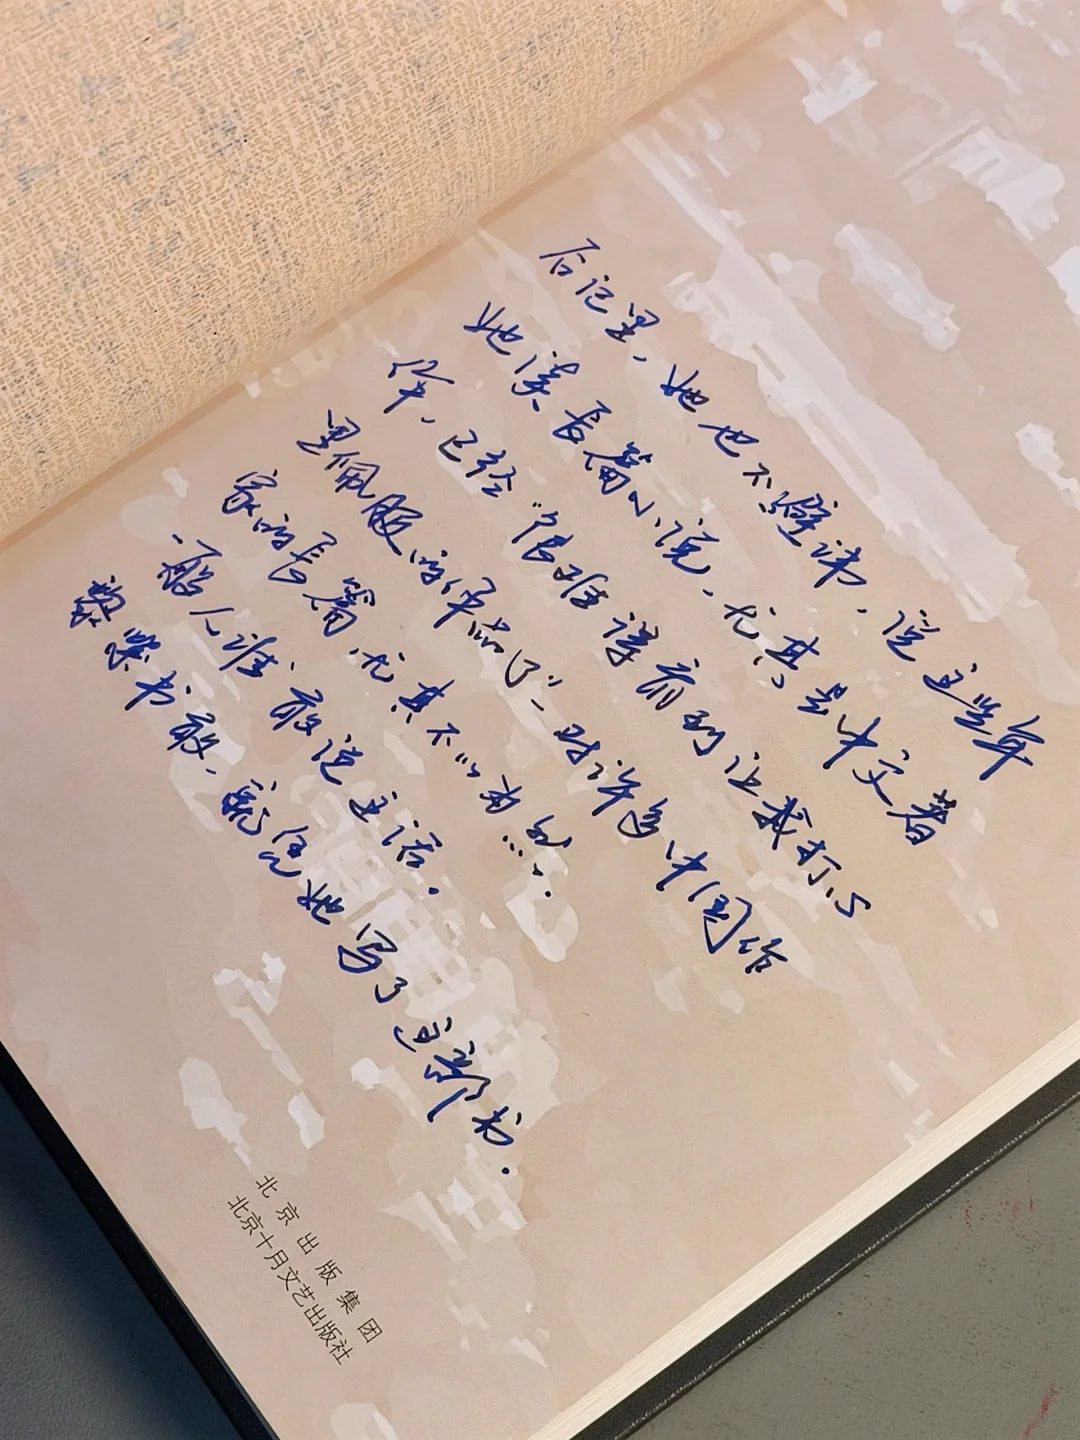 后记里，她也不避讳，说这些年
她读长篇小说，尤其是中文著
作，已经“很难读前到让我打心
里佩服的作品了”－对许多中国作
家的长篇，尤其不以为然……。
一般人谁敢说这话。
黎紫书敢，凭她写了这部书．
北京出版集团
北京十月文艺出版社